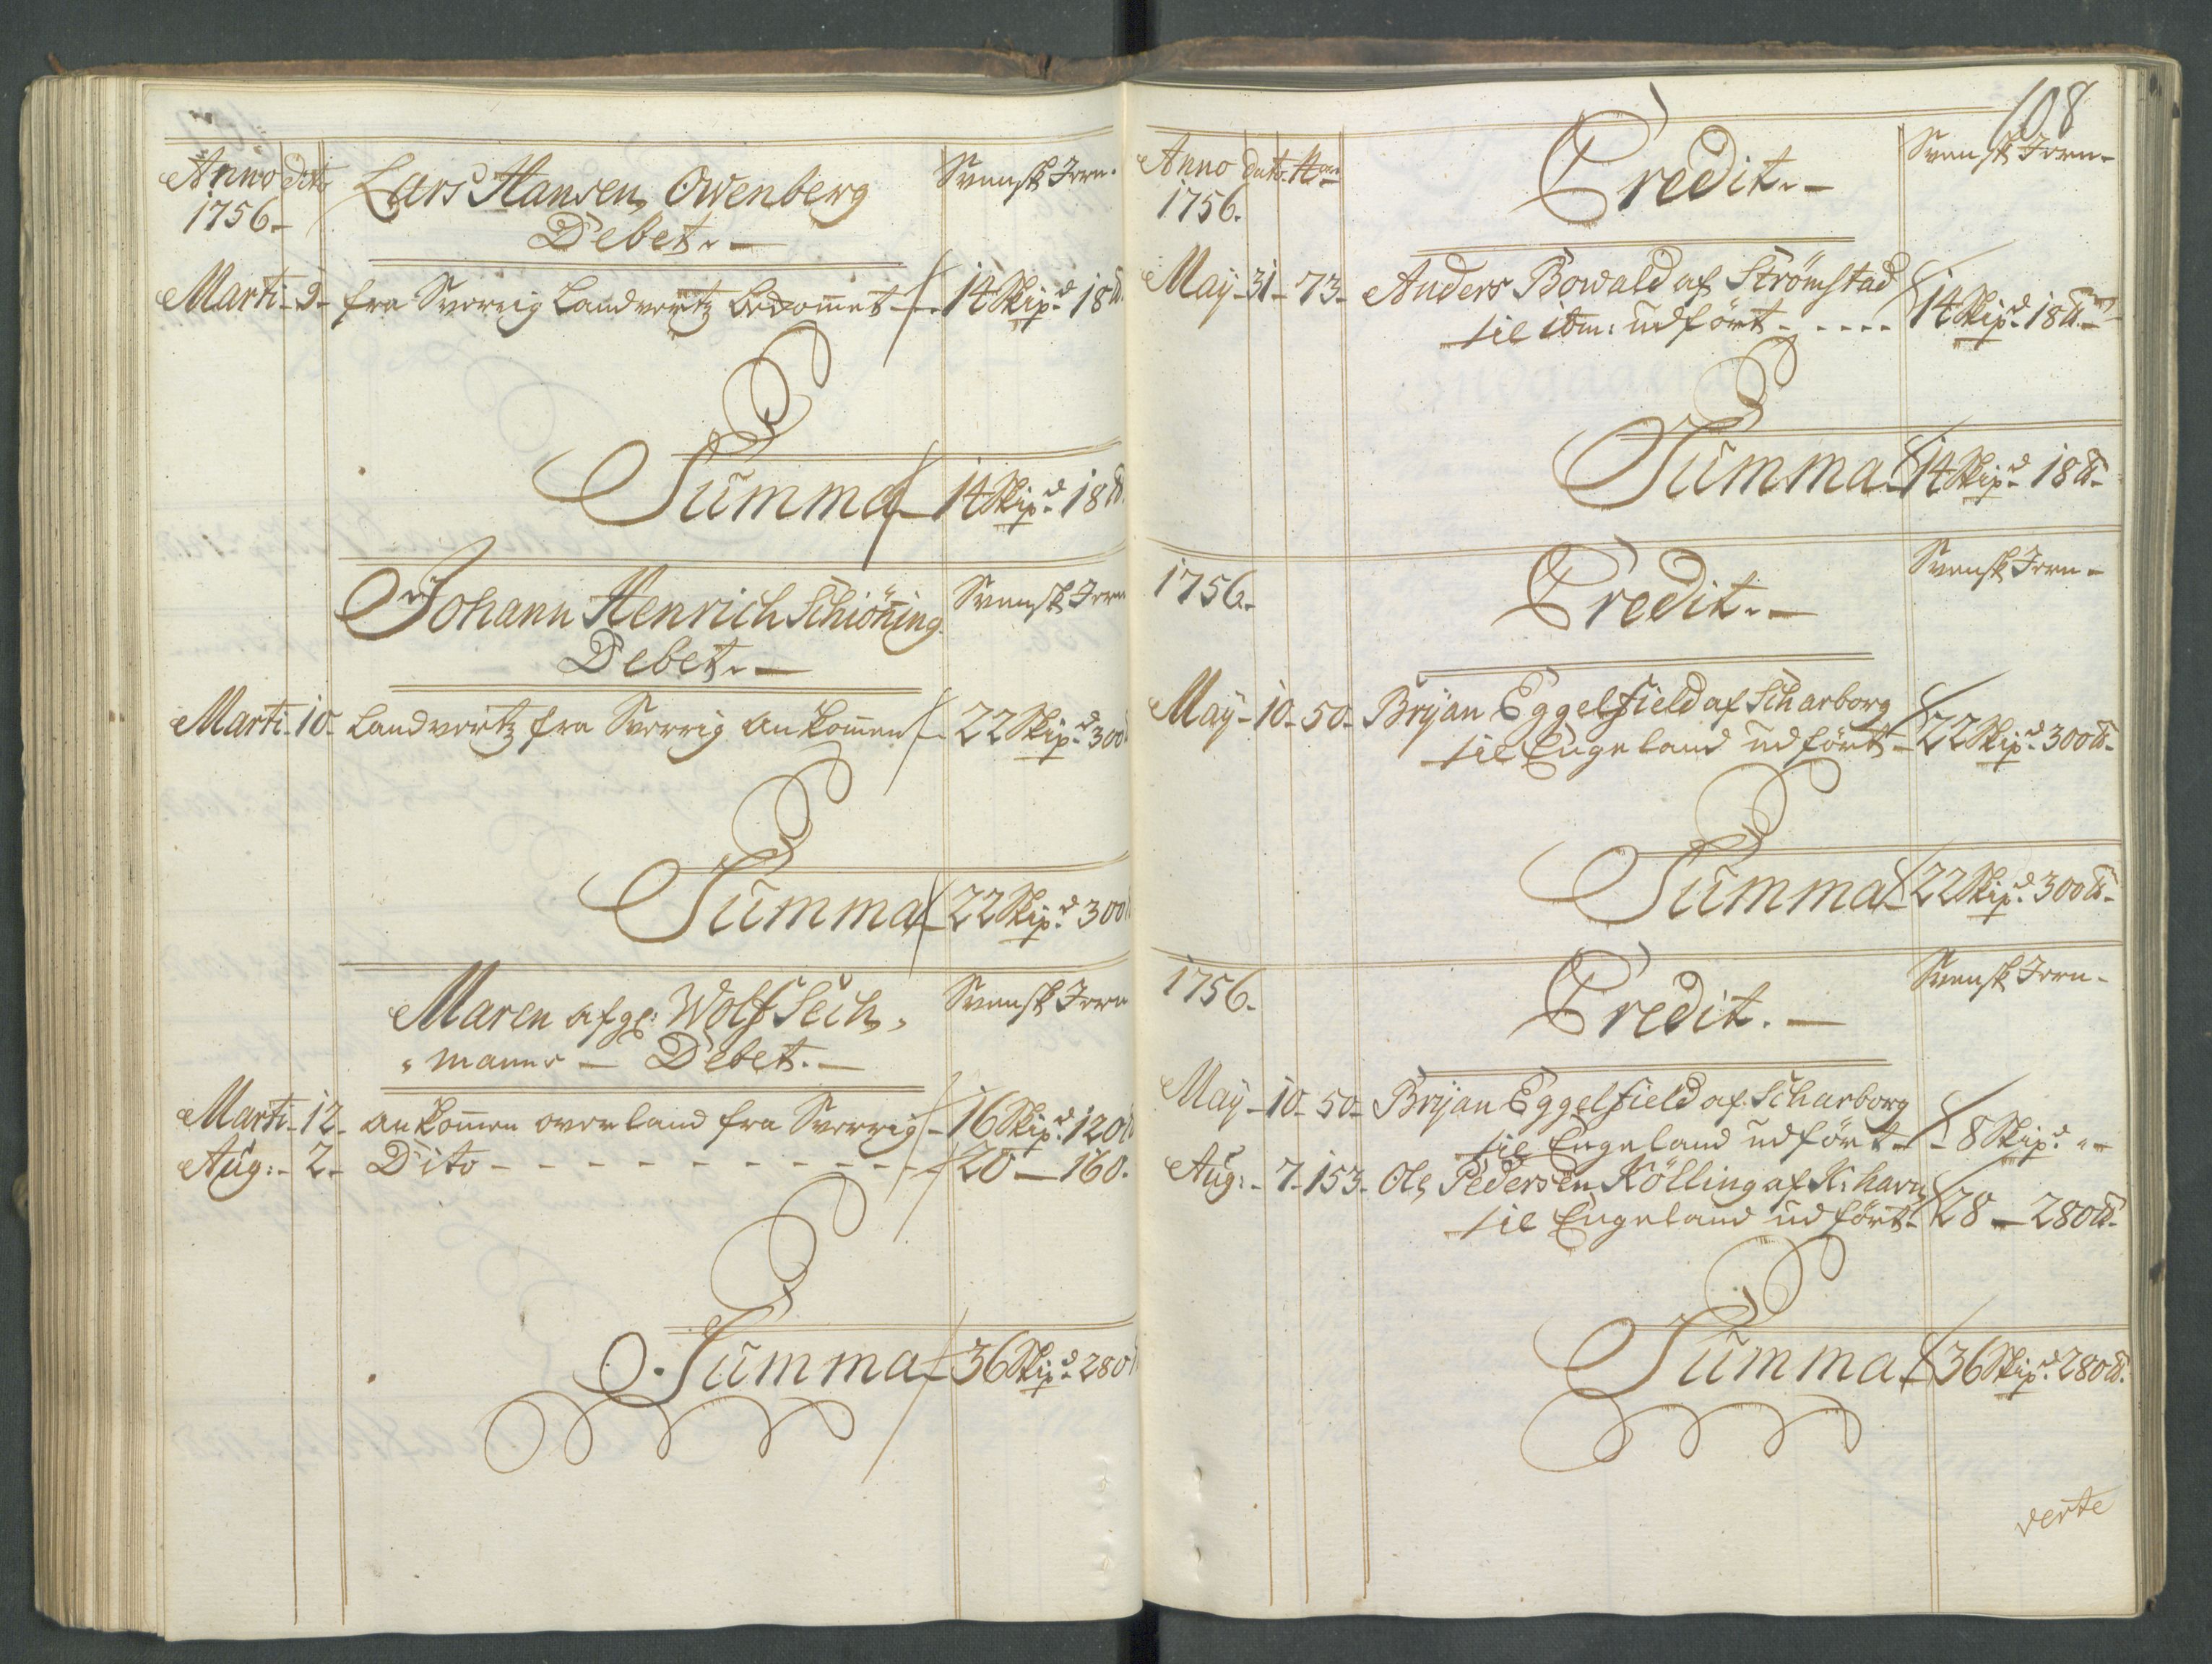 Anno dato Lars Hansen Owenberg Svensk Jern.
1756. Debet.
Marti 9 fra Sverrig Landverts bekomet 14 Skipd 18 ℔
Summa 14 Skipd 18 ℔
Johann Henrich Schiöning Svensk Jern
Debet.
Marti 10 Landverts fra Sverrig ankomen 22 Skipd 300
Summa 22 Skipd 300
Maren afg: Wolf Seich Svensk Jern
manns Debet.
Marti 12 ankomen over land fra Sverrig 16 Skipd 120
Aug: 2 Dito 20 160.
Summa 36 Skipd 280
108
Anno dato No Credit. Svensk Jern
1756.
May 31 73 Anders Bowald af Strömstad
til ibm: udfört 14 Skipd 18 ℔
Summa 14 Skipd 18 ℔
1756. Credit. Svensk Jern
May 10 50 Bryan Eggelfield af Scharborg
til Engeland udfört 22 Skipd 300 ℔
Summa 22 Skipd 300 ℔
1756. Credit. Svensk Jern
May 10 50 Bryan Eggelfield af Scharborg
til Engeland udfört 8 Skipd "
Aug: 7 153 Ole Pedersen Kölling af K: havn
til Engeland udfört 28 280 ℔
Summa 36 Skipd 280 ℔
verte